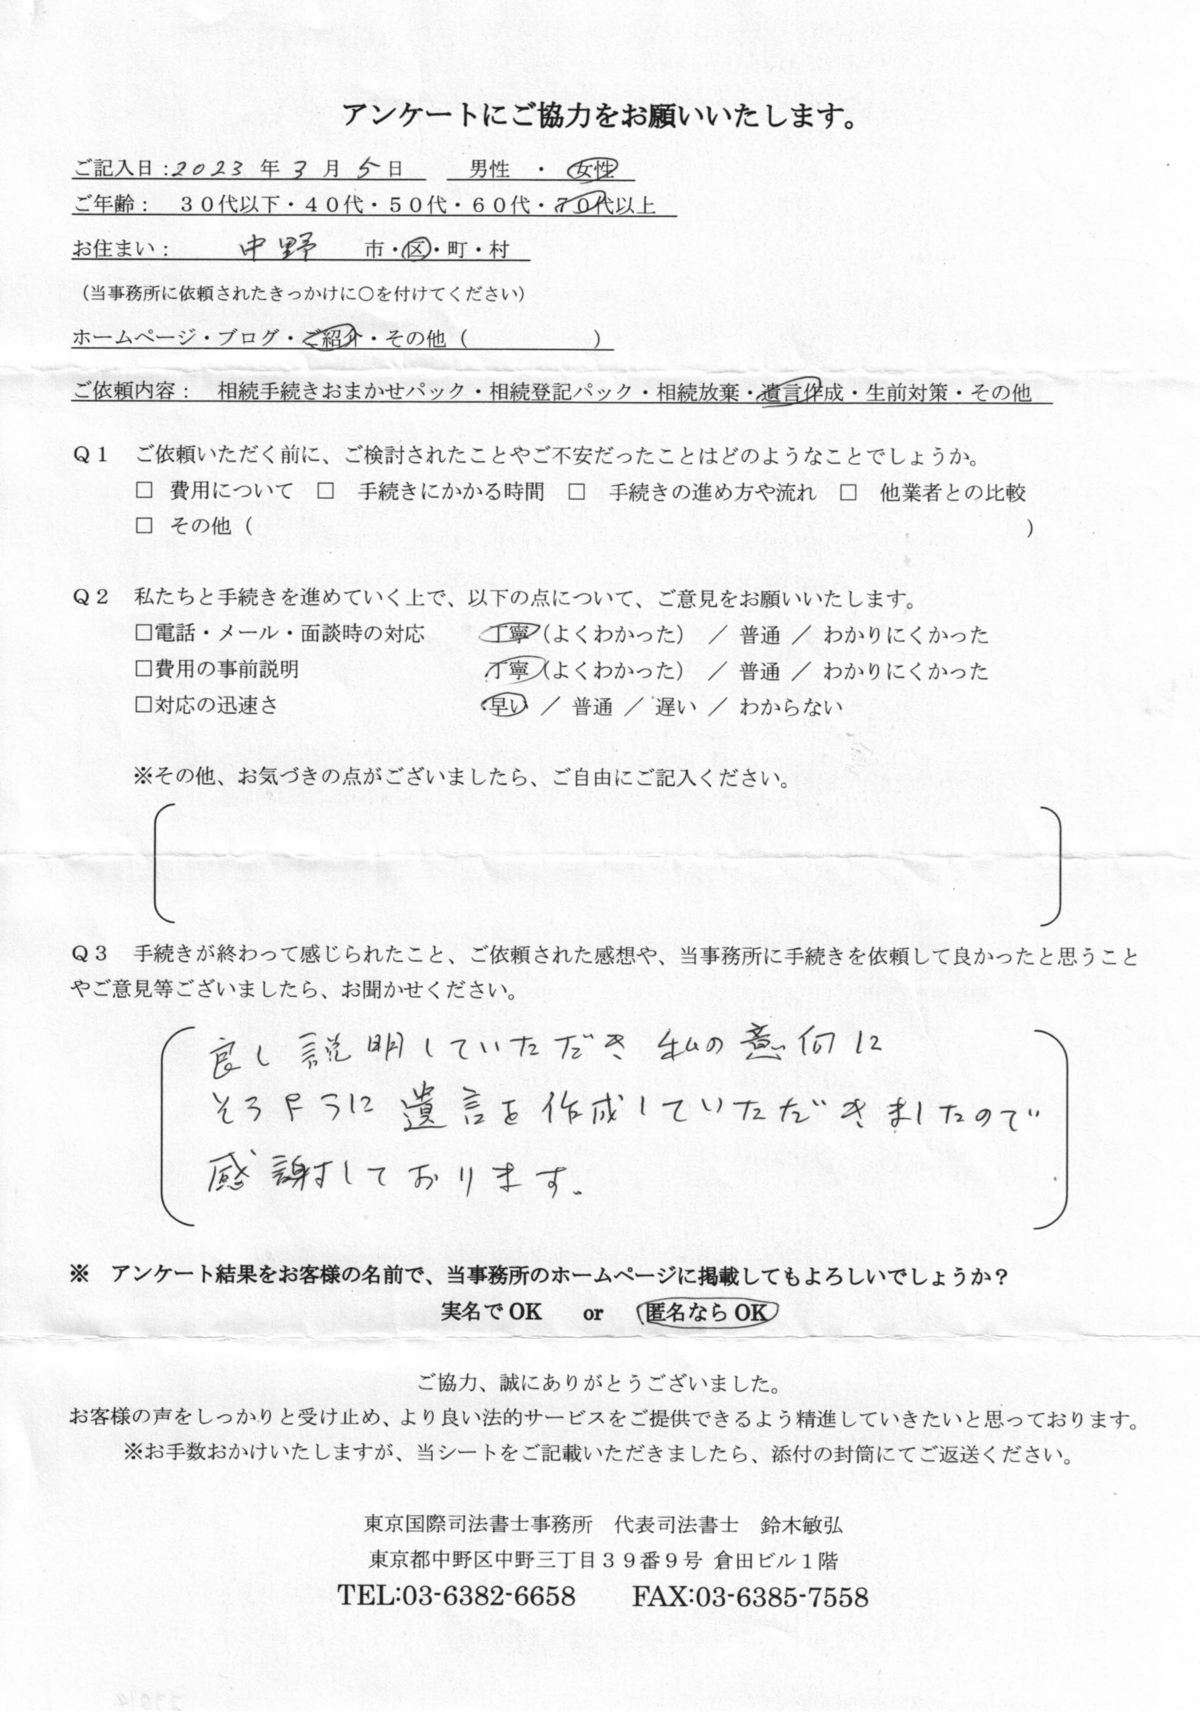 アンケートにご協力をお願いいたします。
ご記入日：2023 年 3 月 5 日　男性 ・ 女性
ご年齢：　３０代以下・４０代・５０代・６０代・７０代以上
お住まい：　中野　市・区・町・村
（当事務所に依頼されたきっかけに〇を付けてください）
ホームページ・ブログ・ご紹介・その他（　　　　　　）
ご依頼内容：　相続手続きおまかせパック・相続登記パック・相続放棄・遺言作成・生前対策・その他
Ｑ１　ご依頼いただく前に、ご検討されたことやご不安だったことはどのようなことでしょうか。
□ 費用について □ 手続きにかかる時間 □ 手続きの進め方や流れ □ 他業者との比較
□ その他（　　　　　　　　　　　　　　　）
Ｑ２　私たちと手続きを進めていく上で、以下の点について、ご意見をお願いいたします。
□電話・メール・面談時の対応　丁寧（よくわかった） ／ 普通 ／ わかりにくかった
□費用の事前説明　丁寧（よくわかった） ／ 普通 ／ わかりにくかった
□対応の迅速さ　早い ／ 普通 ／ 遅い ／ わからない
※その他、お気づきの点がございましたら、ご自由にご記入ください。
Ｑ３　手続きが終わって感じられたこと、ご依頼された感想や、当事務所に手続きを依頼して良かったと思うこと
やご意見等ございましたら、お聞かせください。
良し説明していただき 私の意向に
そうように遺言を作成していただきましたので
感謝しております。
※　アンケート結果をお客様の名前で、当事務所のホームページに掲載してもよろしいでしょうか？
実名でOK　or　匿名ならOK
ご協力、誠にありがとうございました。
お客様の声をしっかりと受け止め、より良い法的サービスをご提供できるよう精進していきたいと思っております。
※お手数おかけいたしますが、当シートをご記載いただきましたら、添付の封筒にてご返送ください。
東京国際司法書士事務所　代表司法書士　鈴木敏弘
東京都中野区中野三丁目３９番９号 倉田ビル１階
TEL:03-6382-6658　FAX:03-6385-7558